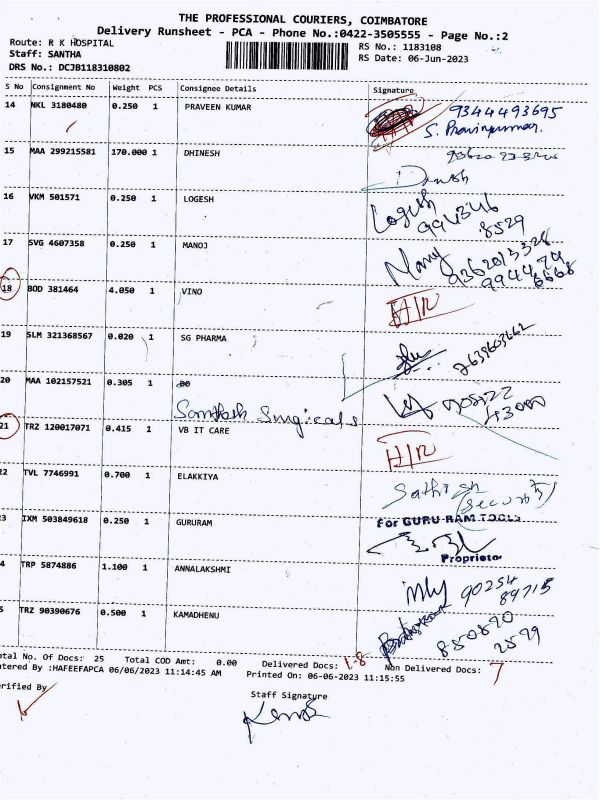 THE PROFESSIONAL COURIERS, COIMBATORE
Delivery Runsheet - PCA - Phone No.:0422-3505555 - Page No.:2
Route: R K HOSPITAL
Staff: SANTHA
DRS No.: DCJB118310802
RS No.: 1183108
RS Date: 06-Jun-2023
S No Consignment No Weight PCS Consignee Details Signature
14 NKL 3180480 0.250 1 PRAVEEN KUMAR
9344493695
S. Pravinkumar.
15 MAA 299215581 170.000 1 DHINESH
Dinesh
16 VKM 501571 0.250 1 LOGESH
Logesh
994346
8529
17 SVG 4607358 0.250 1 MANOJ
Manoj
18 BOD 381464 4.050 1 VINO
H/R
19 SLM 321368567 0.020 1 SG PHARMA
20 MAA 102157521 0.305 1 DO
Santhosh Surgicals
43000
21 TRZ 120017071 0.415 1 VB IT CARE
H/R
22 TVL 7746991 0.700 1 ELAKKIYA
Sathish
(Security)
3 IXM 503849618 0.250 1 GURURAM
For GURU RAM TOOLS
Proprietor
4 TRP 5874886 1.100 1 ANNALAKSHMI
90254
89715
5 TRZ 90390676 0.500 1 KAMADHENU
850870
2579
otal No. Of Docs: 25 Total COD Amt: 0.00 Delivered Docs: 18 Non Delivered Docs: 7
ntered By :HAFEEFAPCA 06/06/2023 11:14:45 AM Printed On: 06-06-2023 11:15:55
erified By
Staff Signature